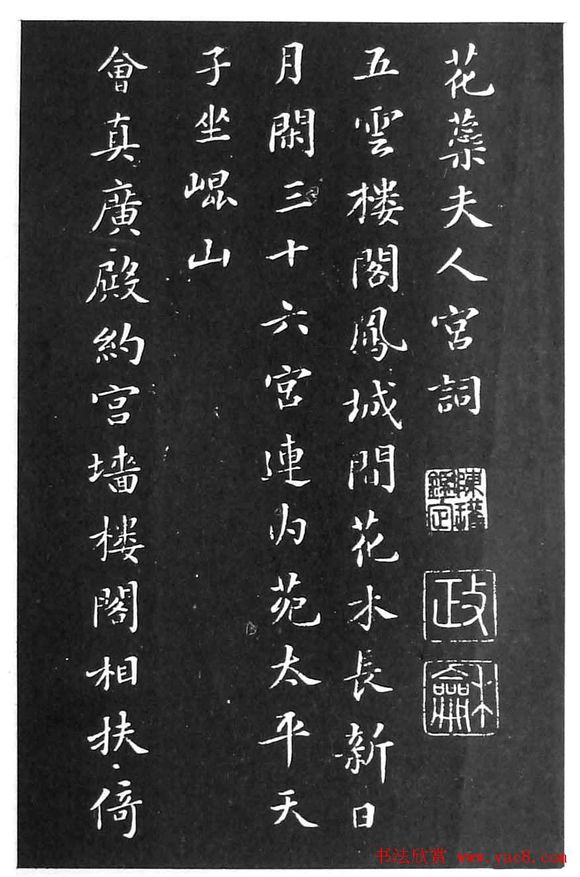 花蘂夫人宮詞
政
龢
五雲楼閣鳳城間花水長新日
月閑三十六宮連内苑太平天
子坐崐山
會真廣殿約宮墻楼閣相扶倚
书法欣赏 www.yac8.com